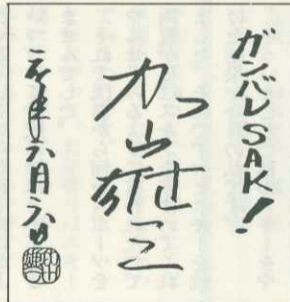 ガンバレSAK!
加山雄三
元年六月六日